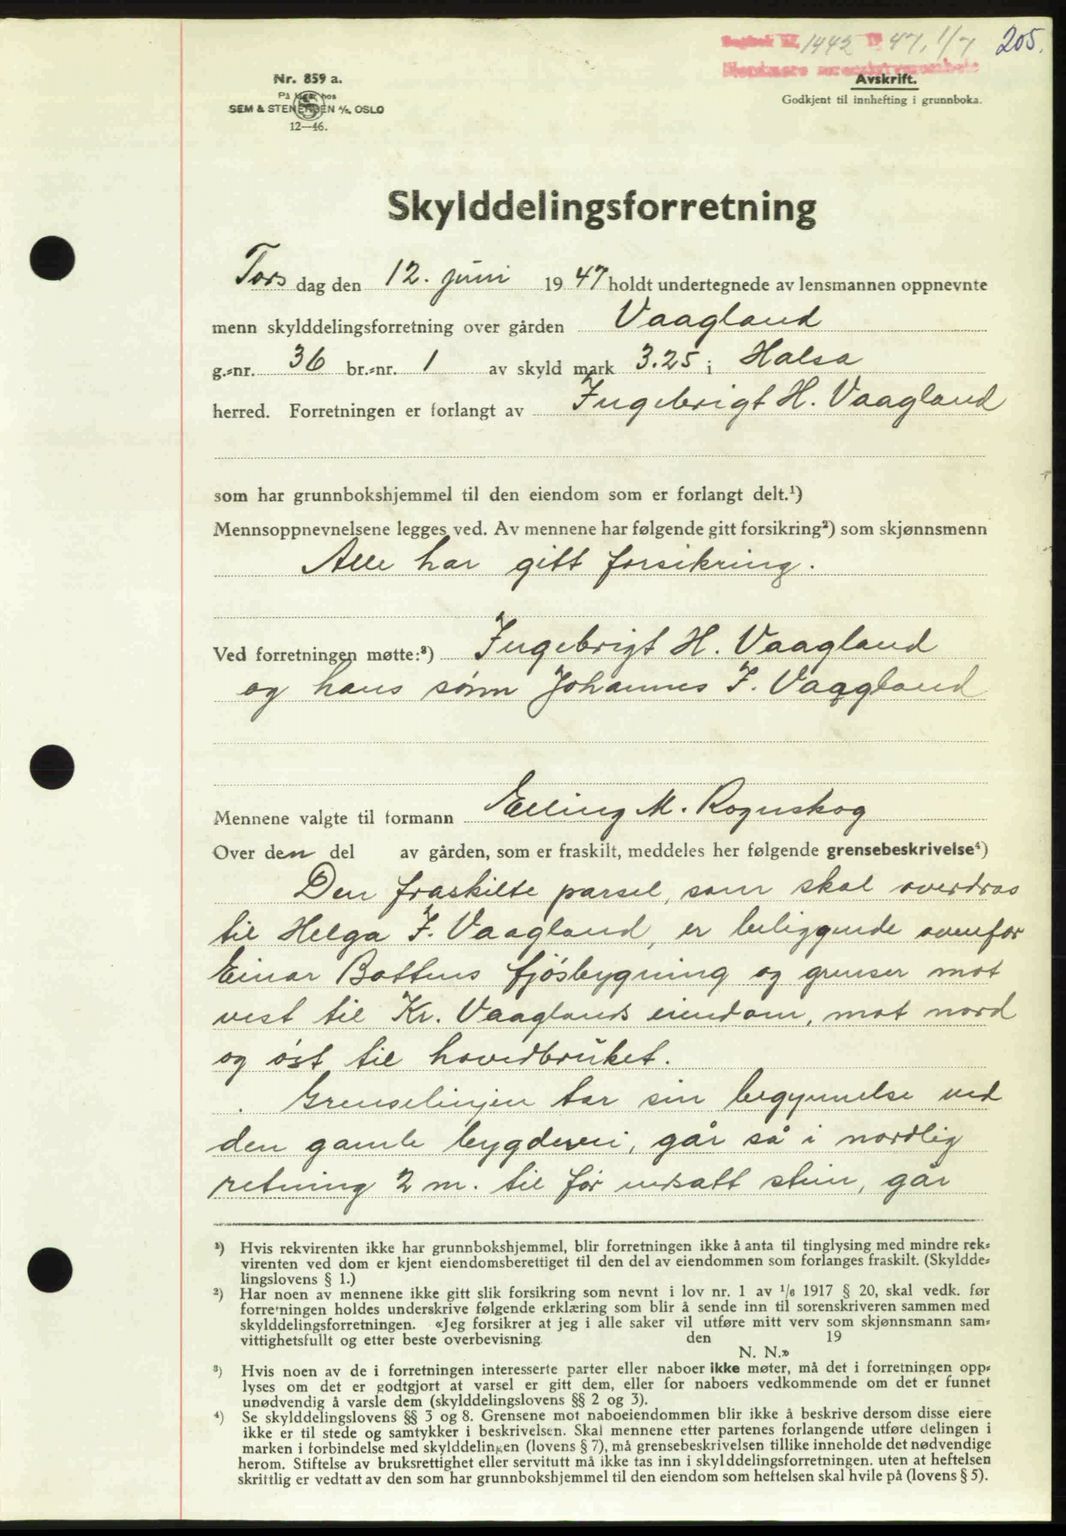 Dagbok nr. 1442 19 47, 1/7 205.
Nordmøre sorenskriverembete
Nr. 859 a.
På lager hos
SEM & STENERSEN A/S, OSLO
12—46.
Avskrift.
Godkjent til innhefting i grunnboka.
Skylddelingsforretning
Tors dag den 12. juni 19 47 holdt undertegnede av lensmannen oppnevnte
menn skylddelingsforretning over gården Vaagland
g.=nr. 36 br.=nr. 1 av skyld mark 3.25 i Halsa
herred. Forretningen er forlangt av Ingebrigt H. Vaagland
som har grunnbokshjemmel til den eiendom som er forlangt delt.¹)
Mennsoppnevnelsene legges ved. Av mennene har følgende gitt forsikring²) som skjønnsmenn
Alle har gitt forsikring.
Ved forretningen møtte:³) Ingebrigt H. Vaagland
og hans sønn Johannes I. Vaagland
Mennene valgte til formann Elling M. Rognskog
Over den del av gården, som er fraskilt, meddeles her følgende grensebeskrivelse⁴)
Den fraskilte parsel, som skal overdras
til Helga I. Vaagland, er beliggende ovenfor
Einar Bottens fjøsbygning og grenser mot
vest til Kr. Vaaglands eiendom, mot nord
og øst til hovedbruket.
Grenselinjen tar sin begynnelse ved
den gamle bygdevei, går så i nordlig
retning 2 m. til før utsatt stein, går
¹) Hvis rekvirenten ikke har grunnbokshjemmel, blir forretningen ikke å anta til tinglysing med mindre rek=
virenten ved dom er kjent eiendomsberettiget til den del av eiendommen som forlanges fraskilt. (Skyldde=
lingslovens § 1.)
²) Har noen av mennene ikke gitt slik forsikring som nevnt i lov nr. 1 av 1/6 1917 § 20, skal vedk. før
forretningen holdes underskrive følgende erklæring som blir å sende inn til sorenskriveren sammen med
skylddelingsforretningen. «Jeg forsikrer at jeg i alle saker vil utføre mitt verv som skjønnsmann sam=
vittighetsfullt og etter beste overbevisning den 19
N. N.»
³) Hvis noen av de i forretningen interesserte parter eller naboer ikke møter, må det i forretningen opp=
lyses om det er godtgjort at varsel er gitt dem, eller for naboers vedkommende om det er funnet
unødvendig å varsle dem (skylddelingslovens §§ 2 og 3).
⁴) Se skylddelingslovens §§ 3 og 8. Grensene mot naboeiendommen blir ikke å beskrive dersom disse eiere
ikke er til stede og samtykker i beskrivelsen. Skal mennene etter partenes forlangende utføre delingen i
marken i forbindelse med skylddelingen (lovens § 7), må grensebeskrivelsen tillike inneholde det nødvendige
herom. Stiftelse av bruksrettighet eller servitutt må ikke tas inn i skylddelingsforretningen, uten at heftelsen
skriftlig er vedtatt av den som har grunnbokshjemmel til den eiendom som heftelsen skal hvile på (lovens § 5).